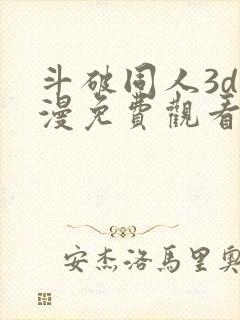 斗破同人3d
漫免費觀看
安杰洛馬里奧